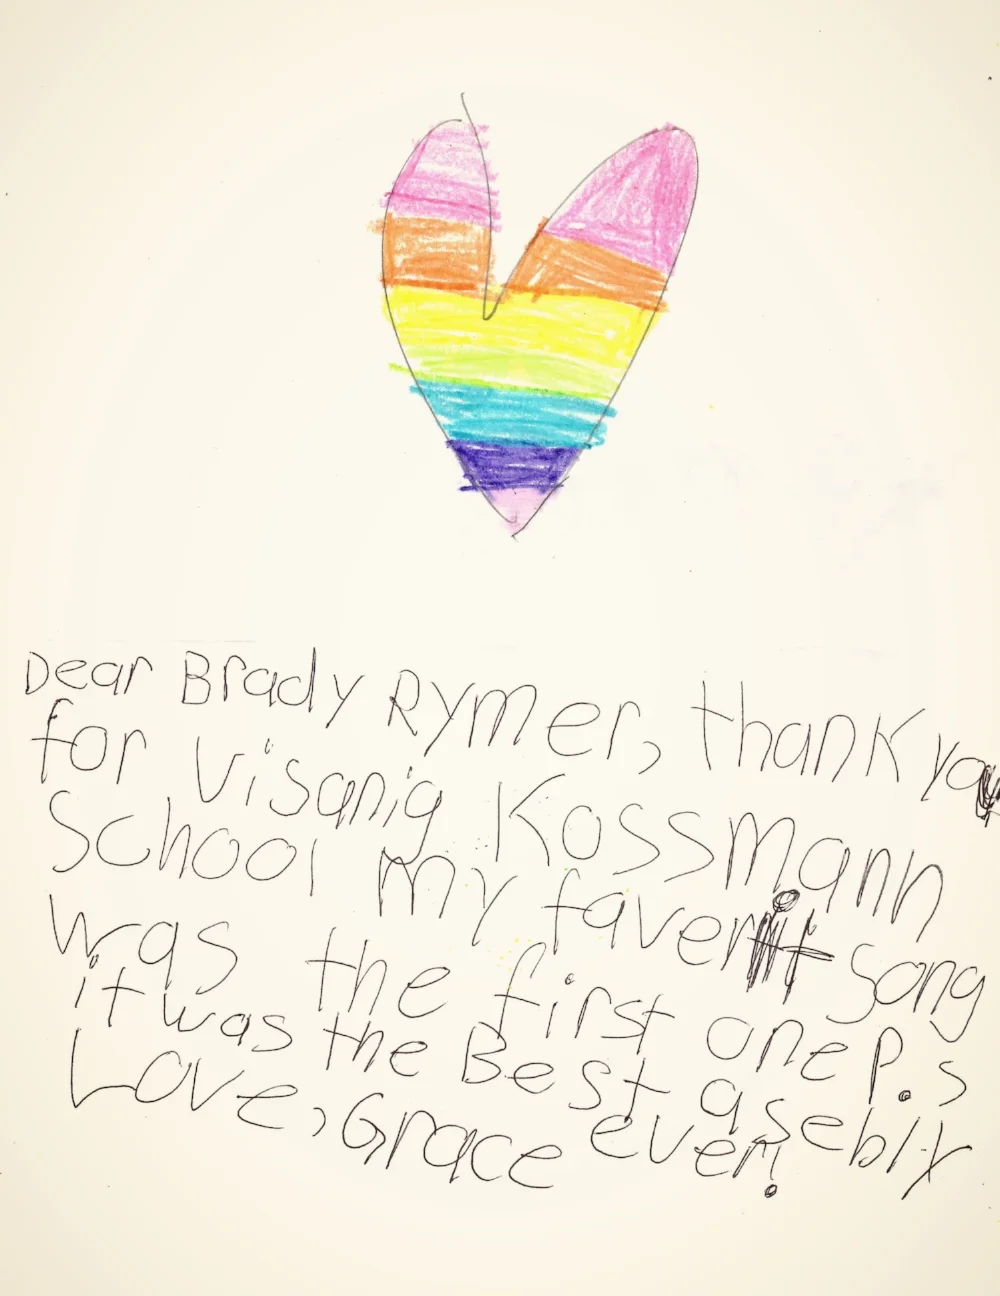 Dear Brady Rymer, thank you
for Visanig Kossmann
School my faverit song
was the first one P.s
it was the Best asebly
Love, Grace ever!